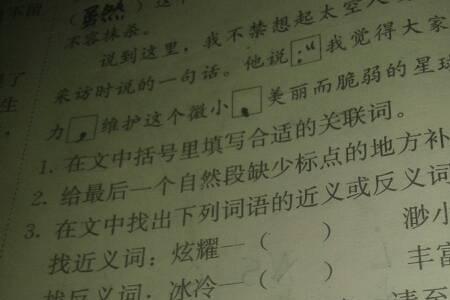 (虽然)这
不容抹杀。
说到这里，我不禁想起太空人
采访时说的一句话。他说：“我觉得大家
力，维护这个微小、美丽而脆弱的星球
1. 在文中括号里填写合适的关联词。
2. 给最后一个自然段缺少标点的地方补
3. 在文中找出下列词语的近义或反义词
找近义词：炫耀—（ ） 渺小
找反义词：冰冷—（ ） 丰富